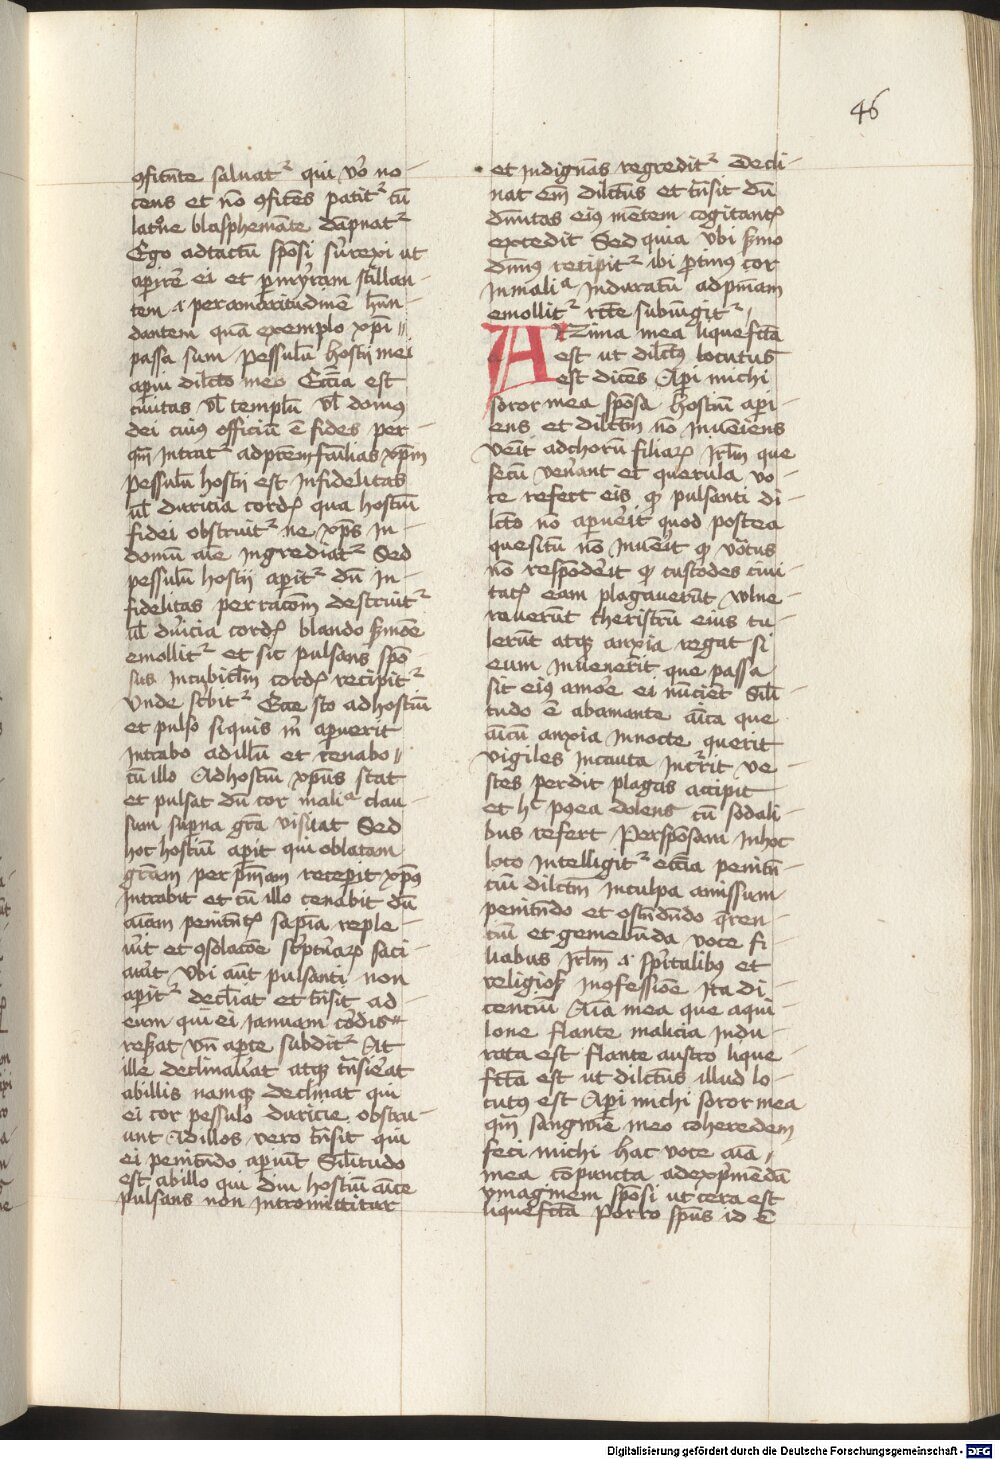 46
ꝯfitente saluatᷣ qui v̊o no-
cens et nō ꝯfitēs patitᷣ cū
latrōe blasphemāte dāpnatᷣ
Ego adtactū spōsi surrexi ut
apirē ei et p mirram stillan-
tem ⁊ per amaritudinē hūn-
dantem quā exemplo xp̄i
passa sum Pessulū hostii mei
aperui dilcō meo Ecc̄ia est
ciuitas vl̄ templū vl̄ domꝰ
dei cuiꝰ officiū ē fides per
qm̄ intratᷣ ad p̄rem fālias xp̄m
pessulū hostii est infidelitas
vl̄ duricia cordꝭ qua hostiū
fidei obstruitᷣ ne xp̄s in
domū aīe ingrediatᷣ Sed
pessulū hostii apitᷣ dū in-
fidelitas per racōem destruitᷣ
vl̄ duricia cordꝭ blando ẜmōe
emollitᷣ et sic pulsans spō-
sus in cubiclm̄ cordꝭ recipitᷣ
Unde scbitᷣ Ecce sto ad hostiū
et pulso siquis m̄ apuerit
intrabo ad illū et cenabo
cū illo Ad hostiū xp̄us stat
et pulsat dū cor malicia clau-
sum supna gr̄a visitat Sed
hoc hostiū apit qui oblatam
gr̄am per pn̄iam receperit xp̄us
intrabit et cū illo cenabit dū
aīam penitētꝭ sapīa reple
uit et ꝯsolacōe scpturaꝝ saci-
auit Ubi aūt pulsanti non
apitᷣ declīat et tn̄sit ad
eum qui ei ianuam cordis
reserat Un̄ apte subditᷣ At
ille declinauat atqꝫ tn̄sierat
ab illis namqꝫ declinat qui
ei cor pessulo duricie obstru-
unt Ad illos vero tn̄sit qui
ei penitēdo apiūt Similitudo
est ab illo qui diu hostiū aīce
pulsans non intromittitur
et indignās regreditᷣ Decli-
nat em̄ dilctus et tn̄sit dū
diuinitas eiꝰ mētem cogitantꝭ
excedit Sed quia ubi ẜmo
diuinꝰ recipitᷣ ibi ptinꝰ cor
in malicia induratū ad pn̄iam
emollitᷣ recte subiungitᷣ
ANima mea liquefcā
est ut dilctꝰ locutus
est dicēs Api michi
soror mea spōsa hostiū api-
ens et dilctm̄ nō inueniens
venit ad chorū filiaꝝ irlm̄ que
secū venerant et querula vo-
ce refert eis qꝫ pulsanti di-
lcō nō apuerit quod postea
quesitū nō inuenit qꝫ vocatus
nō respōderit qꝫ custodes ciui
tatꝭ eam plagauerūt vulne-
rauerūt theristrū eius tu-
lerūt atqꝫ anxia rogat si
eum inuenerit que passa
sit eiꝰ amore ei nūcient Simili-
tudo ē ab amante aīca que
aīcū anxia in nocte querit
vigiles incauta incurrit ve-
stes perdit plagas accipit
et hᶜ postea dolens cū sodali-
bus refert Per spōsam in hoc
loco intelligitᷣ ecc̄ia peniten-
ciū dilctm̄ in culpa amissum
penitēdo et ostendendo queren-
ciū et gemebūda voce fi-
liabus irlm̄ ⁊ spūitalibꝰ et
religiosis in ꝯfessione ita di-
cenciū Aīa mea que aqui-
lone flante malicia indu-
rata est flante austro lique
fctā est ut dilctus illud lo-
cutꝰ est Api michi soror mea
qm̄ sangwie meo coheredem
feci michi hac voce aīa
mea cōpuncta ad exp̄mēdā
ymaginem spōsi ut cera est
liquefctā Porro spūs id ē
Digitalisierung gefördert durch die Deutsche Forschungsgemeinschaft - DFG